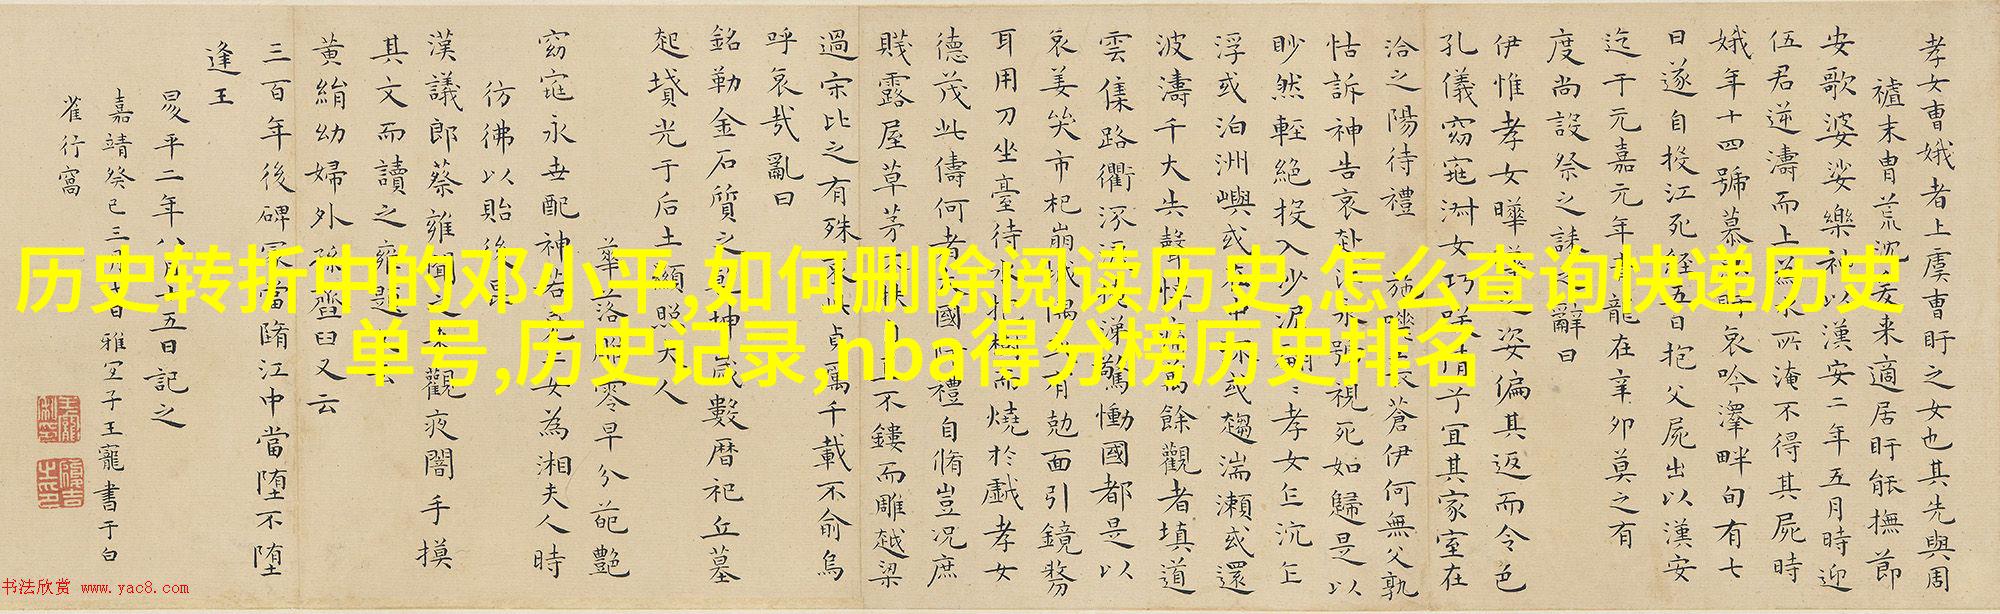 历史转折中的邓小平,如何删除阅读历史,怎么查询快递历史
单号,历史记录,nba得分榜历史排名
孝女曹娥者上虞曹盱之女也其先與周
禬末胄荒沈爰来適居盱能撫節
安歌婆娑樂神以漢安二年五月時迎
伍君逆濤而上為水所淹不得其屍時
娥年十四號慕盱哀吟澤畔旬有七
日遂自投江死經五日抱父屍出以漢安
迄于元嘉元年青龍在辛卯莫之有
度尚設祭之誄辭曰
伊惟孝女曄曄之姿偏其返而令色
孔儀窈窕淑女巧咲倩兮宜其家室在
洽之陽待禮施嗟上天蒼伊何無父孰
怙訴神告哀赴江永號視死如歸是以
眇然輕絕投入沙泥孝女乍沉乍
浮或泊洲嶼或在中流或趨湍瀨或還
波濤千丈失聲悼痛萬餘觀者填道
雲集路衢泳淚掩涕驚慟國都是以
哀姜哭市杞崩城隅或有尅面引鏡剺
耳用刀坐臺待水抱樹而燒於戲孝女
德茂此儔何者大國防禮自脩豈況庶
賤露屋草茅不扶自直不鏤而雕越梁
過宋比之有殊哀此貞厲千載不渝烏
呼哀哉亂曰
銘勒金石質之乾坤歲數曆祀丘墓
起墳光于后土顯照夫人
華落雕零早分葩艷
窈窕永世配神若堯二女為湘夫人時
彷彿以貽後昆
漢議郎蔡雍聞之来觀夜闇手摸
其文而讀之雍題文云
黃絹幼婦外孫虀臼又云
三百年後碑冢當墮江中當墮不墮
逢王
昇平二年八月十五日記之
嘉靖癸巳三月廿日雅宜子王寵書于白
雀行窩
书法欣赏 www.yac8.com